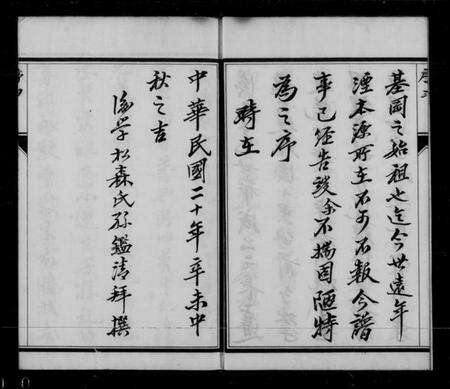 基同之始祖也迄今世遠年
湮本源所在不可不報今譜
事已經告竣余不揣固陋特
為之序
時在
中華民國二十年辛未中
秋之吉
後學松森氏孫鑑清拜撰